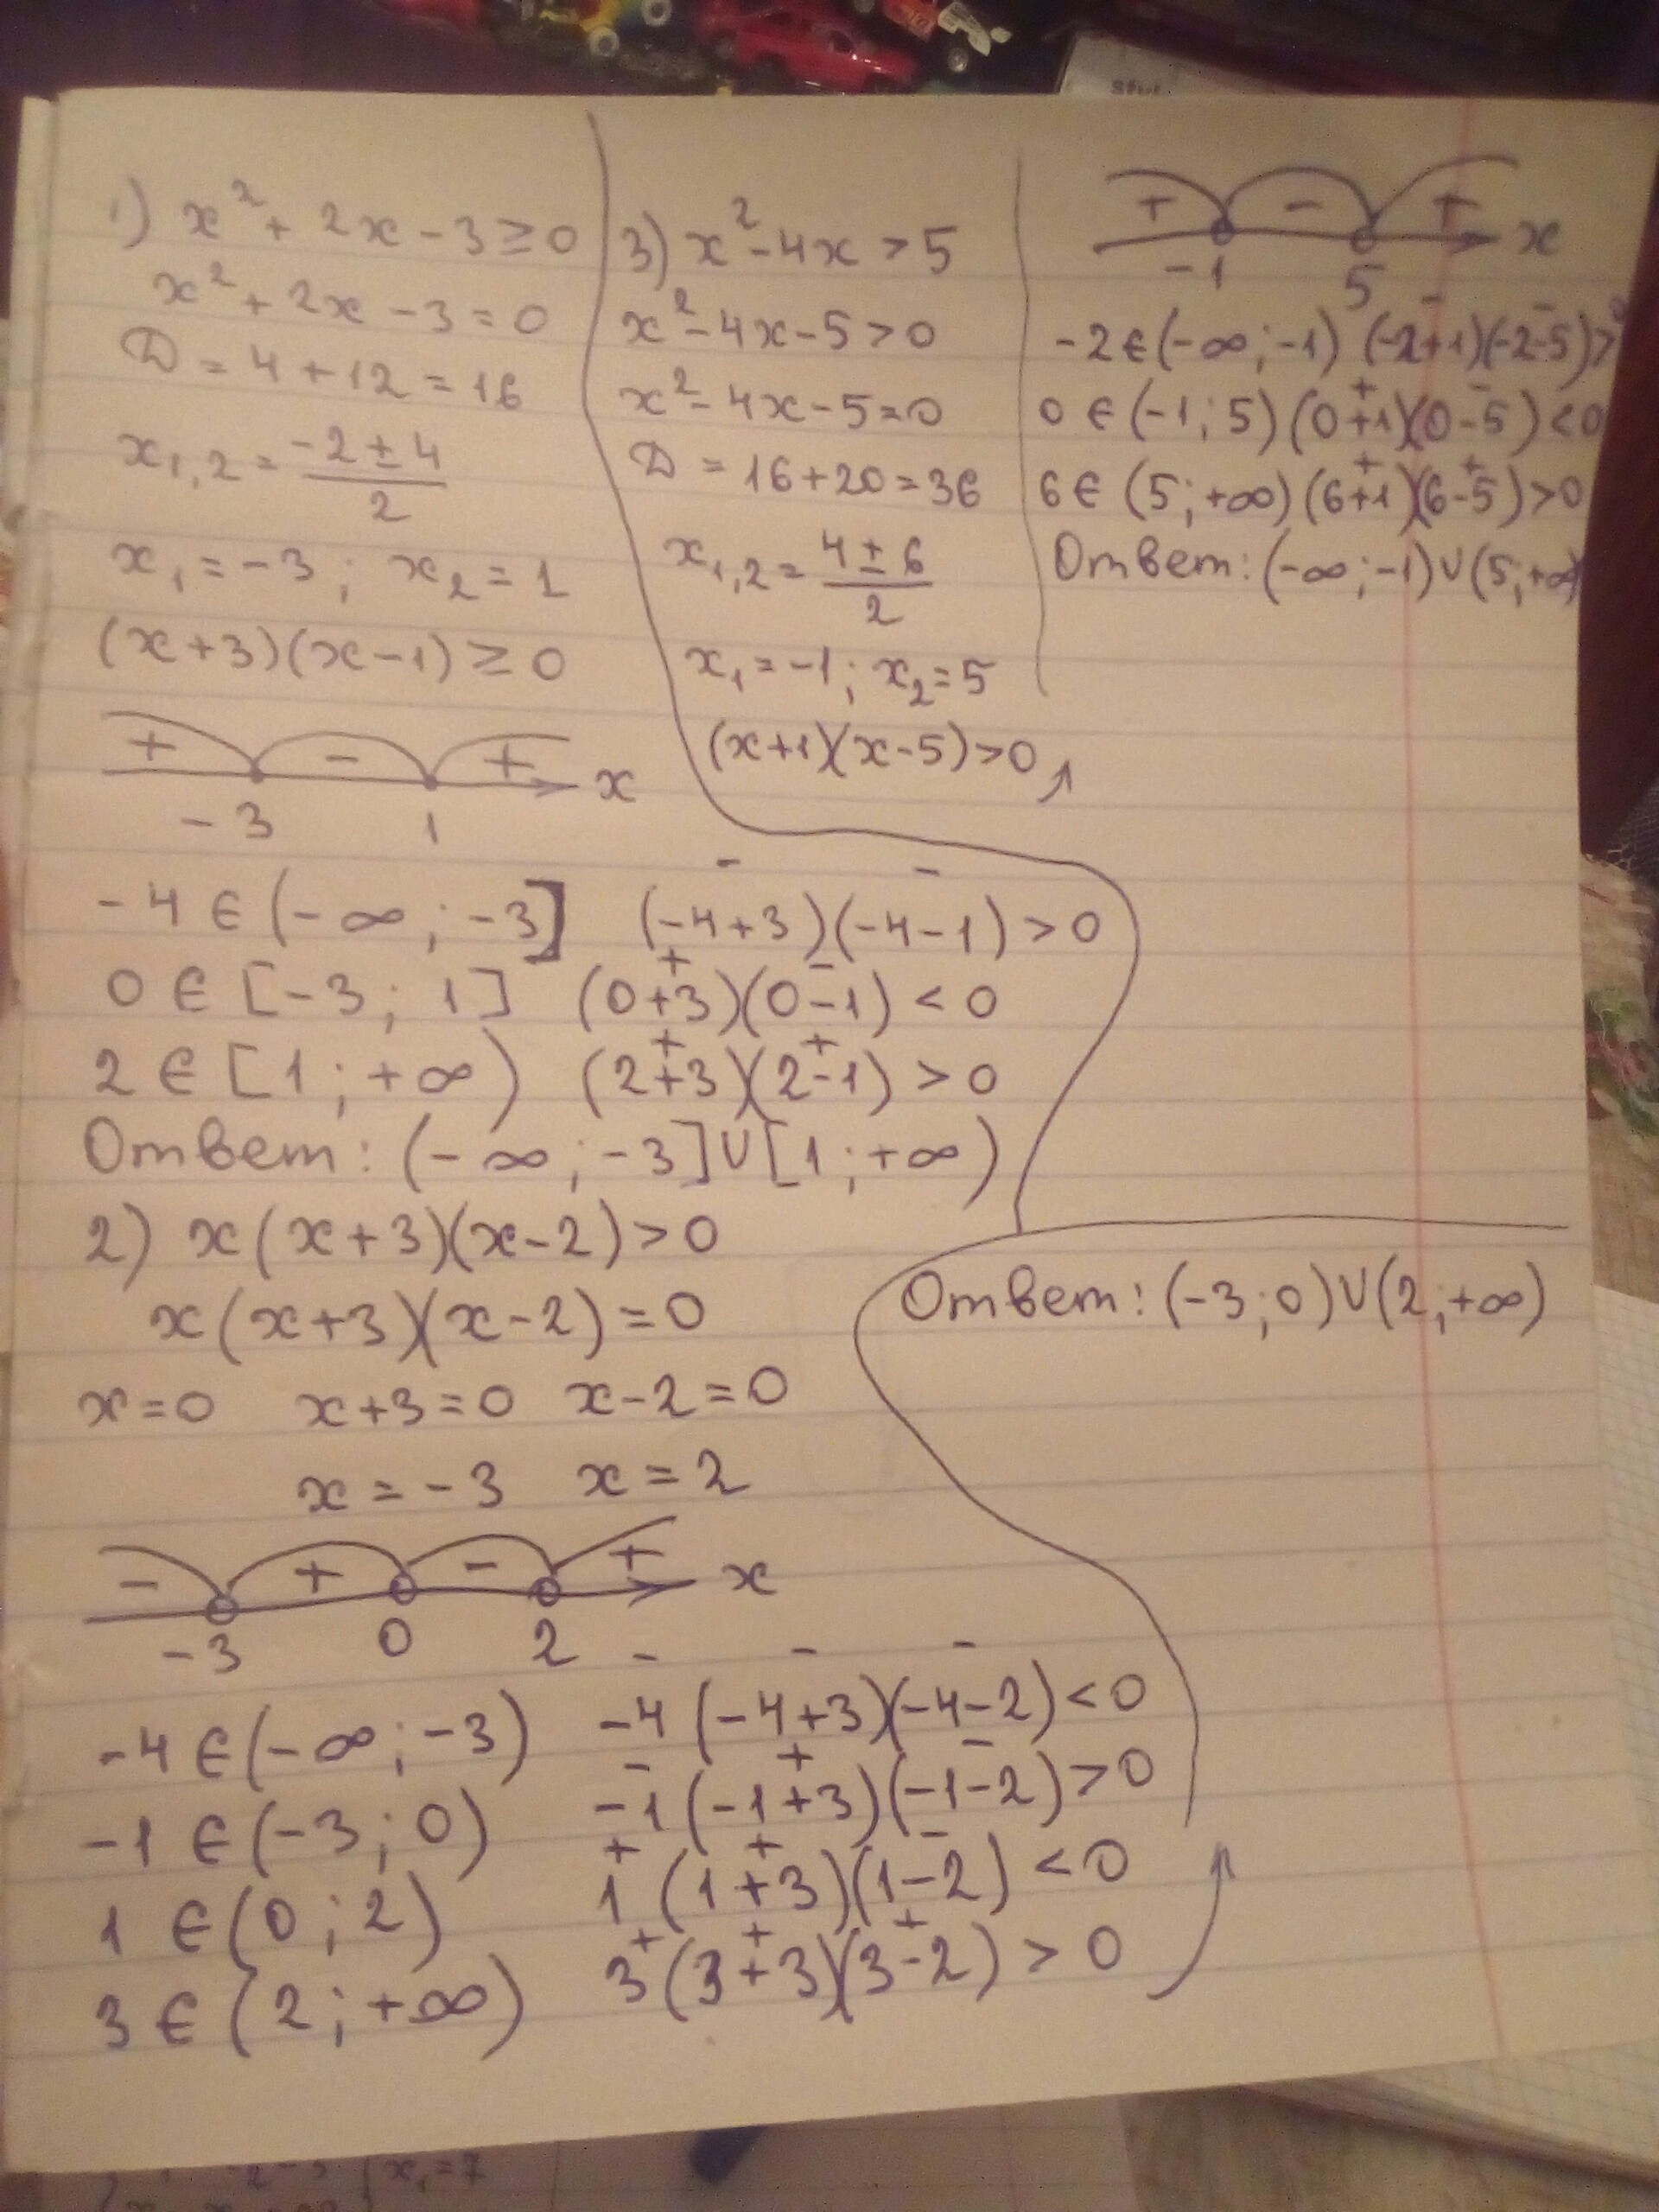 1) x² + 2x - 3 ≥ 0
x² + 2x - 3 = 0
D = 4 + 12 = 16
x₁,₂ = (-2 ± 4)/2
x₁ = -3 ; x₂ = 1
(x+3)(x-1) ≥ 0
+ - + x
-3 1
-4 ∈ (-∞ ; -3] (-4+3)(-4-1) > 0
- -
0 ∈ [-3 ; 1] (0+3)(0-1) < 0
+ -
2 ∈ [1 ; +∞) (2+3)(2-1) > 0
+ +
Ответ: (-∞ ; -3] ∪ [1 ; +∞)
2) x(x+3)(x-2) > 0
x(x+3)(x-2) = 0
x = 0 x+3 = 0 x-2 = 0
x = -3 x = 2
- + - + x
-3 0 2
- - -
-4 ∈ (-∞ ; -3) -4(-4+3)(-4-2) < 0
- + -
-1 ∈ (-3 ; 0) -1(-1+3)(-1-2) > 0
+ + -
1 ∈ (0 ; 2) 1(1+3)(1-2) < 0
+ + +
3 ∈ (2 ; +∞) 3(3+3)(3-2) > 0
Ответ: (-3 ; 0) ∪ (2 ; +∞)
3) x² - 4x > 5
x² - 4x - 5 > 0
x² - 4x - 5 = 0
D = 16 + 20 = 36
x₁,₂ = (4 ± 6)/2
x₁ = -1 ; x₂ = 5
(x+1)(x-5) > 0
+ - + x
-1 5
- -
-2 ∈ (-∞ ; -1) (-2+1)(-2-5) > 0
+ -
0 ∈ (-1 ; 5) (0+1)(0-5) < 0
+ +
6 ∈ (5 ; +∞) (6+1)(6-5) > 0
Ответ: (-∞ ; -1) ∪ (5 ; +∞)
x₁ = 7